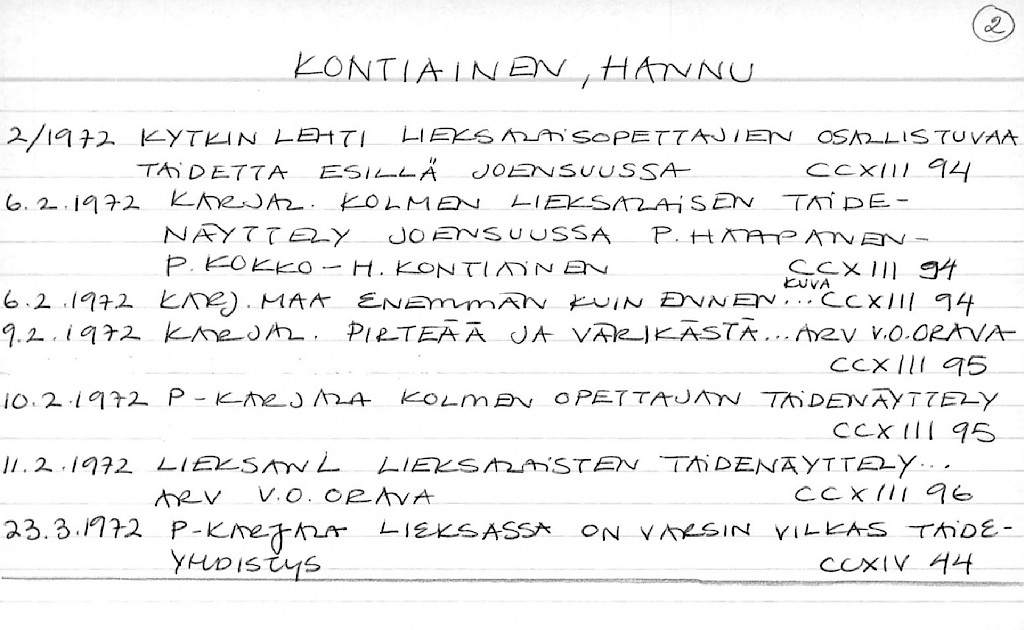 2
KONTIAINEN, HANNU
2/1972 KYTKIN LEHTI LIEKSALAISOPETTAJIEN OSALLISTUVAA
TAIDETTA ESILLÄ JOENSUUSSA CCXIII 94
6.2.1972 KARJAL. KOLMEN LIEKSALAISEN TAIDE-
NÄYTTELY JOENSUUSSA P. HAAPANEN-
P. KOKKO-H. KONTIAINEN CCXIII 94
6.2.1972 KARJ. MAA ENEMMÄN KUIN ENNEN... KUVA CCXIII 94
9.2.1972 KARJAL. PIRTEÄÄ JA VÄRIKÄSTÄ... ARV V.O.ORAVA
CCXIII 95
10.2.1972 P-KARJALA KOLMEN OPETTAJAN TAIDENÄYTTELY
CCXIII 95
11.2.1972 LIEKSAN L LIEKSALAISTEN TAIDENÄYTTELY...
ARV V.O. ORAVA CCXIII 96
23.3.1972 P-KARJALA LIEKSASSA ON VARSIN VILKAS TAIDE-
YHDISTYS CCXIV 44